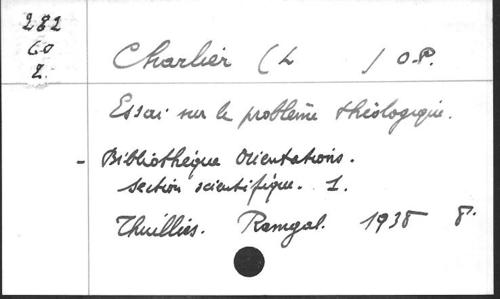 282
Co
2.
Charlier (L ) O.P.
Essai sur le problème théologique.
- Bibliothèque Orientations.
section scientifique. 1.
Thuillies. Ramgal. 1938 8°.